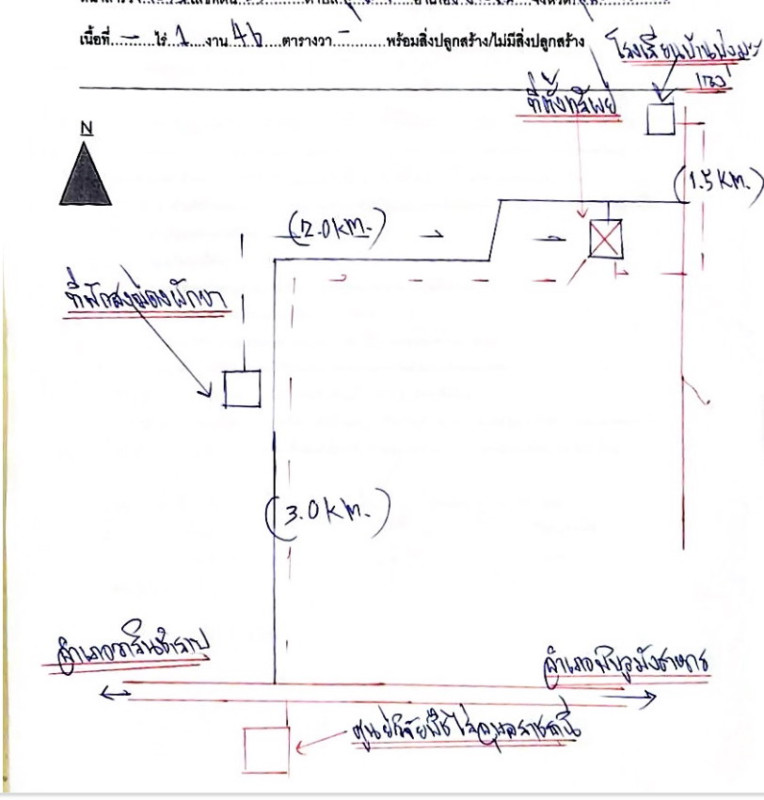 เนื้อที่ – ไร่ 1 งาน 46 ตารางวา – พร้อมสิ่งปลูกสร้าง/ไม่มีสิ่งปลูกสร้าง
โรงเรียนบ้านบ่งมะ
แลง
ที่ตั้งทรัพย์
N
(1.5 KM.)
(2.0 KM.)
ที่พักสงฆ์ดงผักขา
(3.0 KM.)
อำเภอวารินชำราบ
อำเภอพิบูลมังสาหาร
ศูนย์วิจัยพืชไร่อุบลราชธานี